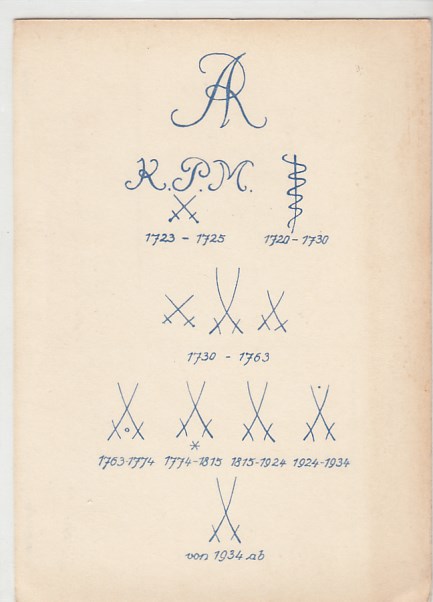 AR
K.P.M.
1723 - 1725 1720 - 1730
1730 - 1763
1763-1774 1774-1815 1815-1924 1924-1934
von 1934 ab